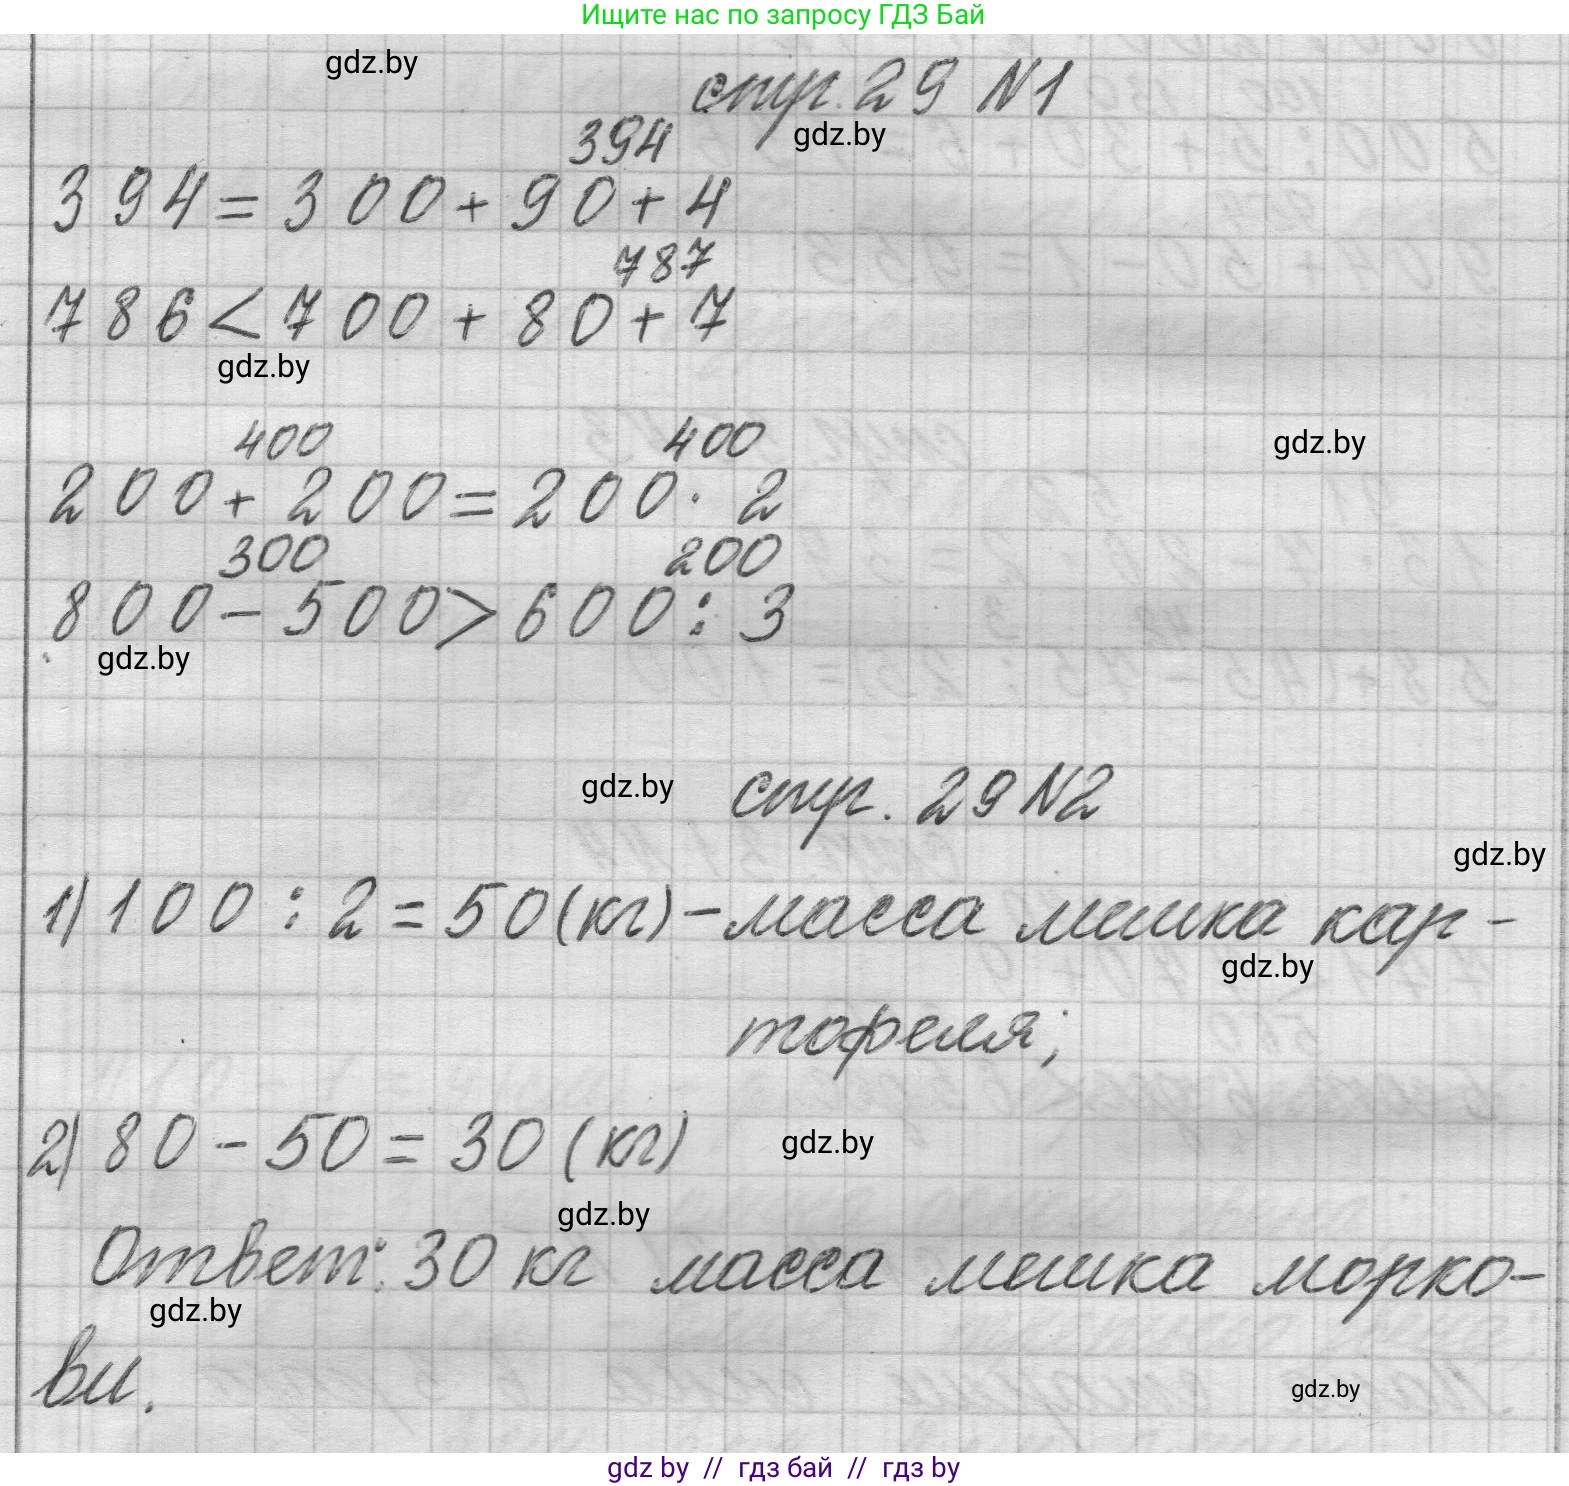 Ищите нас по запросу ГДЗ Бай
gdz.by
стр. 29 N1
gdz.by
394
394 = 300 + 90 + 4
787
786 < 700 + 80 + 7
gdz.by
400 400
gdz.by
200 + 200 = 200 · 2
300 200
800 - 500 > 600 : 3
gdz.by
gdz.by
стр. 29 N2
gdz.by
1) 100 : 2 = 50 (кг) - масса мешка кар-
gdz.by
тофеля;
2) 80 - 50 = 30 (кг)
gdz.by
gdz.by
Ответ: 30 кг масса мешка морко-
gdz.by
ви.
gdz.by
gdz by // гдз бай // гдз by